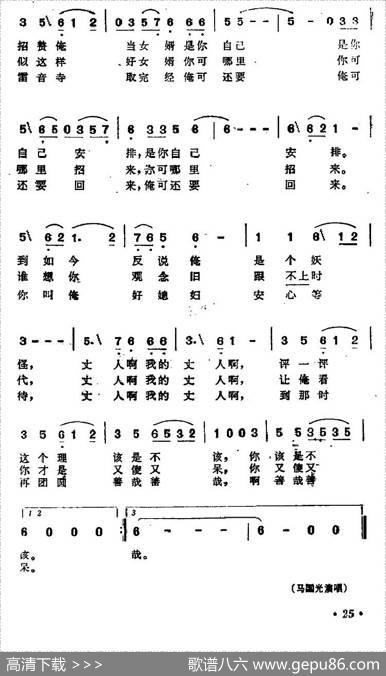 3 5 6 1 2 | 0 3 5 7 6 6 6 | 5 5 - 0 3 3
招赘俺 当女婿是你自己 是你
似这样 好女婿你可哪里 你可
雷音寺 取完经俺可还要 俺可
5 6 0 3 5 7 | 6 3 3 5 6 | 6 - - - | 6 6 2 1 -
自己安 排,是你自己 安排。
哪里招 来,你可哪里 招来。
还要回 来,俺可还要 回来。
5 6 2 1. 2 | 5 7 6 5 6 - | 1 1 6 1 2
到如今 反说俺 是个妖
谁想你 观念旧 跟不上时
你叫俺 好媳妇 安心等
3 - - - | 5. 7 6 6 6 | 5. 3 6 1 | 3 5 6 1 2
怪, 丈人啊我的丈人啊, 评一评
代, 丈人啊我的丈人啊, 让俺看
待, 丈人啊我的丈人啊, 到那时
3 5 6 1 2 | 3 5 6 5 3 2 | 1 0 0 3 | 5 3 5 3 5
这个理 该是不 该,你该是不
你才是 又傻又 呆,你又傻又
再团圆 善哉善 哉,啊善哉善
1 2 3
6 0 0 0 :‖ 6 - - - | 6 - 0 0 ‖
该。 哉。
呆。
(马国光演唱)
• 25 •
高清下载 >>> 歌谱八六 www.gepu86.com